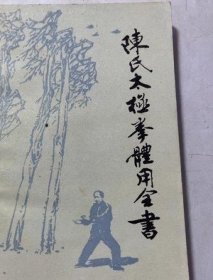 陳氏太極拳體用全書